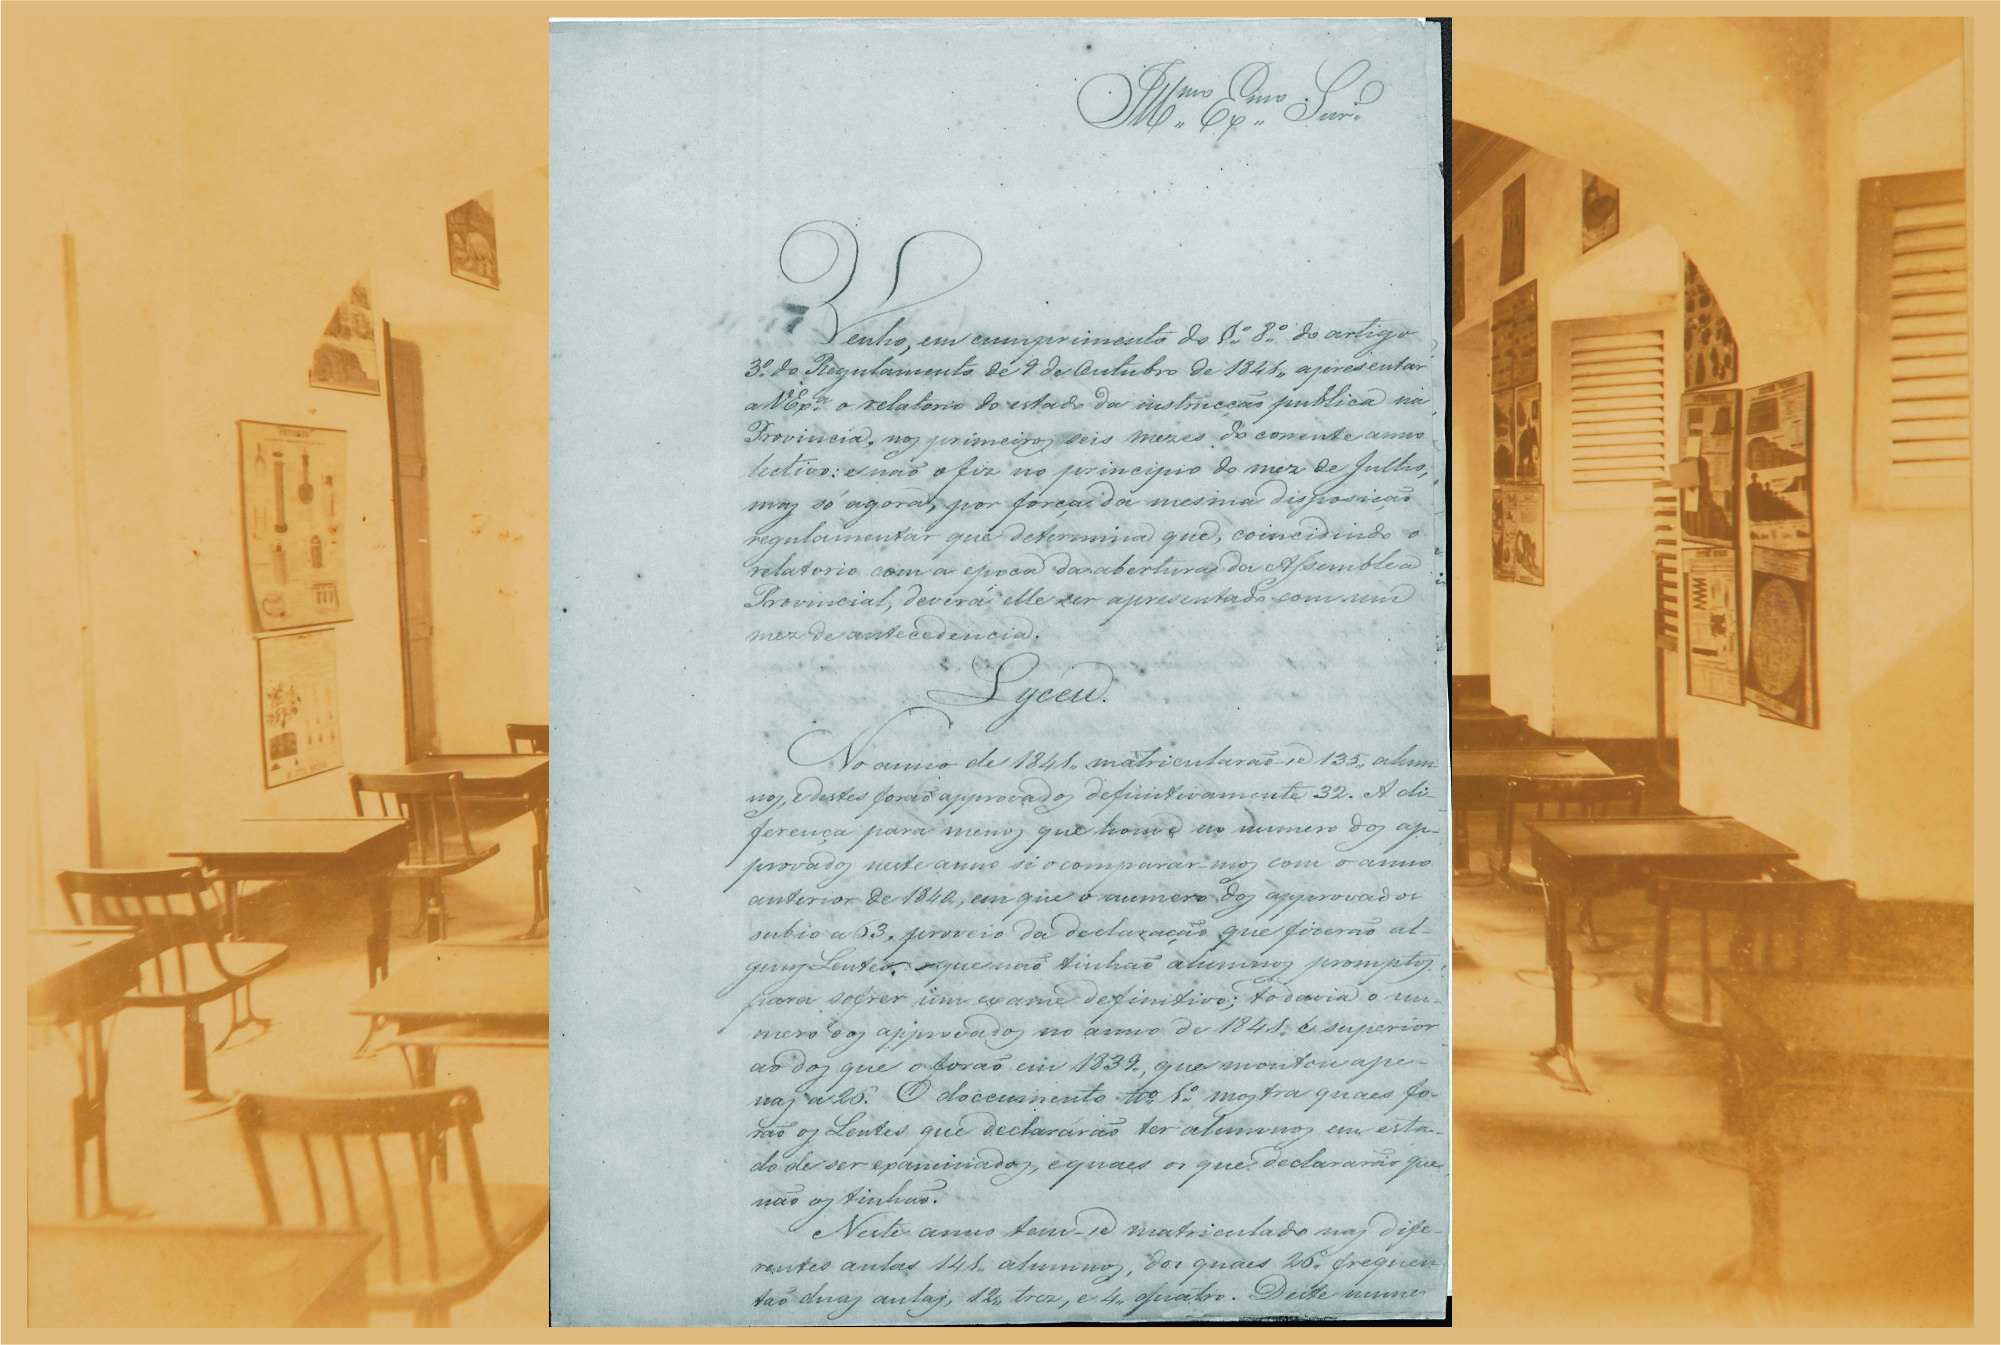 Ill.mo Ex.mo Snr.
Venho, em cumprimento do §.º 8.º do artigo
3.º do Regulamento de 9 de Outubro de 1841, apresentar
a V Ex.ª o relatorio do estado da instrucção publica na
Provincia, nos primeiros seis mezes do corrente anno
lectivo: e não o fiz no principio do mez de Julho,
mas só agora, por força da mesma disposição
regulamentar que determina que, coincidindo o
relatorio com a epoca da abertura da Assemblea
Provincial, deverá elle ser apresentado com um
mez de antecedencia.
Lyceu.
No anno de 1841, matricularão-se 135, alum-
nos, e destes forão approvados definitivamente 32. A di-
ferença para menos que houve no numero dos ap-
provados neste anno si o comparar-mos com o anno
anterior de 1840, em que o numero dos approvados
subio a 63, proveio da declaração que fizerão al-
guns Lentes, que não tinhão alumnos promptos
para sofrer um exame definitivo; todavia o nu-
mero dos approvados no anno de 1841, é superior
ao dos que o forão em 1839, que montou ape-
nas a 26. O documento nº 1.º mostra quaes fo-
rão os Lentes que declarárão ter alumnos em esta-
do de ser examinados, e quaes os que declararão que
não os tinhão.
Neste anno tem-se matriculado nas dife-
rentes aulas 141, alumnos, dos quaes 26, frequen-
tão duas aulas, 12, trez, e 4, quatro. Deste nume